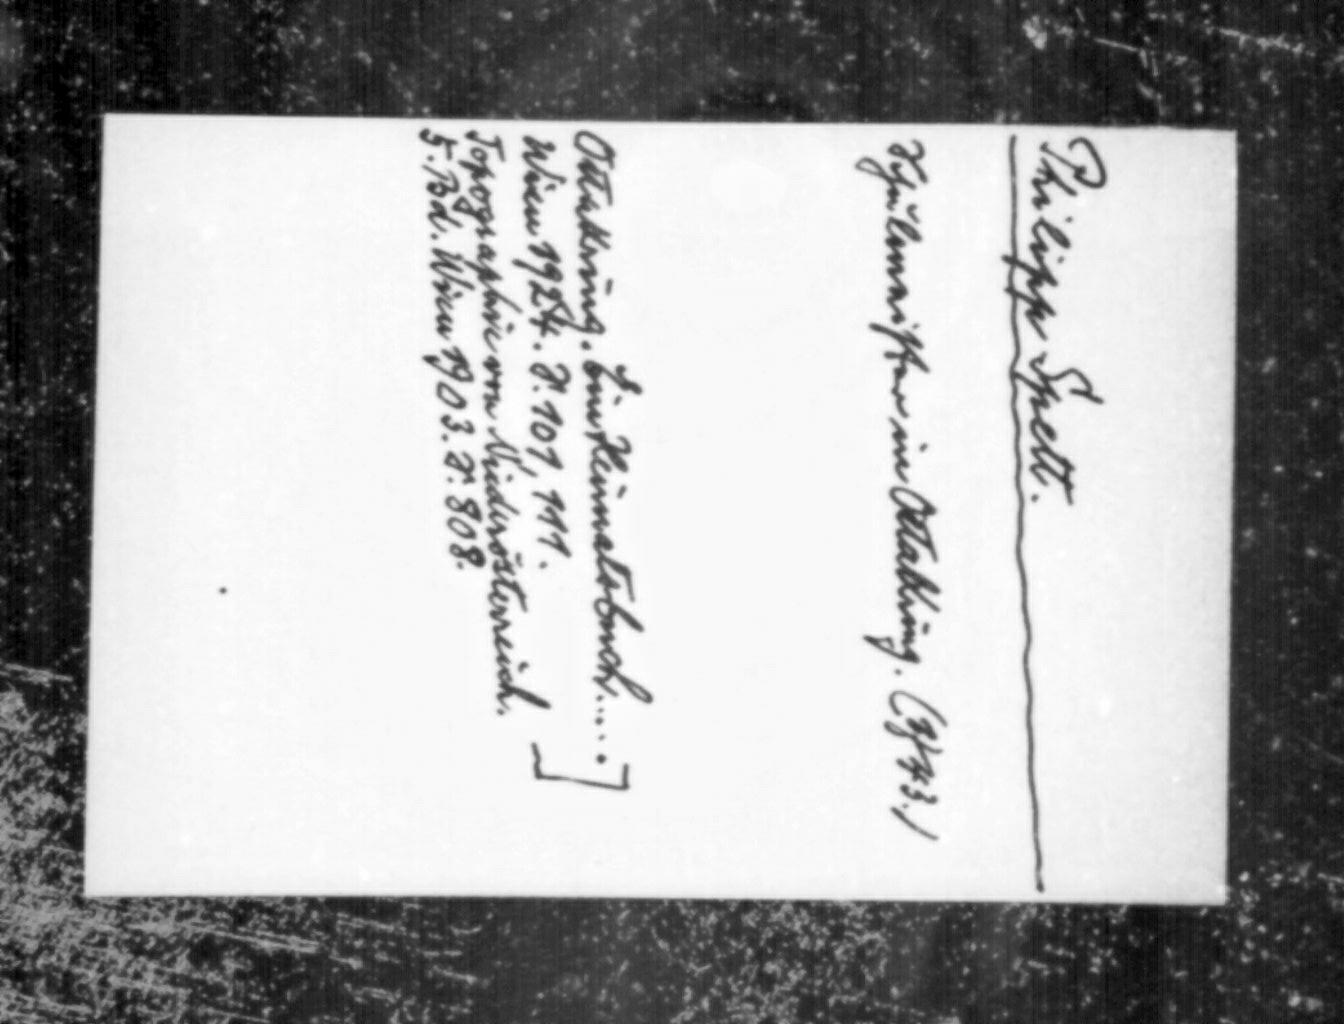 Philipp Spett.
Schulmeister in Ottakring. (1743.)
Ottakring. Ein Heimatsbuch....
Wien 1924. S. 107, 111.
Topographie von Niederösterreich.
5. Bd. Wien 1903. S. 808.